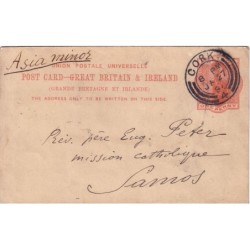 Asia minor
UNION POSTALE UNIVERSELLE
POST CARD—GREAT BRITAIN & IRELAND
(GRANDE BRETAGNE ET IRLANDE)
THE ADDRESS ONLY TO BE WRITTEN ON THIS SIDE.
CORK
Rév. père Eug. Peter
mission catholique
Samos